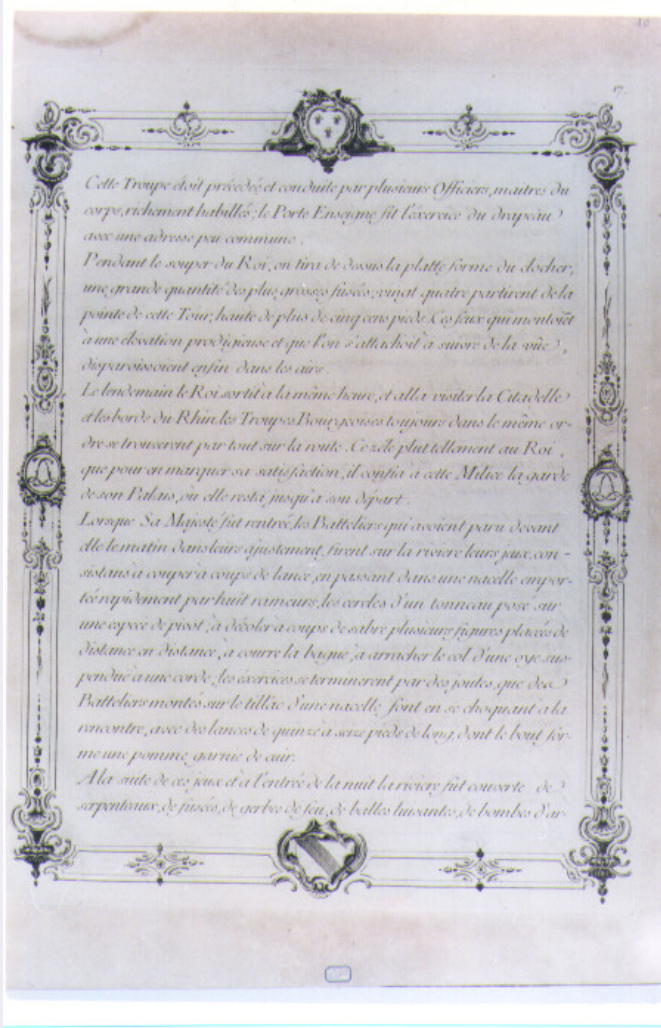 17.
Cette Troupe étoit précedée et conduite par plusieurs Officiers, maitres du
corps, richement habillés; le Porte Enseigne fit l'éxercice du drapeau
avec une adresse peu commune.
Pendant le souper du Roi, on tira de dessus la platte forme du clocher,
une grande quantité des plus grosses fusées; vingt quatre partirent de la
pointe de cette Tour, haute de plus de cinq cens pieds. Ces feux qui montoiēt
à une élévation prodigieuse et que l'on s'attachoit à suivre de la vûe,
disparoissoient enfin dans les airs.
Le lendemain le Roi sortit a la même heure, et alla visiter la Citadelle
et les bords du Rhin. les Troupes Bourgeoises toujours dans le même or-
dre se trouverent par tout sur la route. Ce zéle plut tellement au Roi,
que pour en marquer sa satisfaction, il confia à cette Milice la garde
de son Palais, où elle resta jusqu'à son départ.
Lorsque Sa Majesté fut rentrée, les Batteliers qui avoient paru devant
elle le matin dans leurs ajustement, firent sur la riviere leurs jeux, con-
sistans à couper à coups de lance, en passant dans une nacelle empor-
tée rapidement par huit rameurs, les cercles d'un tonneau posé sur
une espece de pivot, à décoler à coups de sabre plusieurs figures placées de
distance en distance, à courre la bague, à arracher le col d'une oye sus-
penduë à une corde; les éxercices se terminerent par des joutes, que des
Batteliers montés sur le tillac d'une nacelle, font en se choquant a la
rencontre, avec des lances de quinze à seize pieds de long, dont le bout for-
me une pomme garnie de cuir.
A la suite de ces jeux et à l'entrée de la nuit la riviere fut couverte de
serpenteaux, de fusées, de gerbes de feu, de balles luisantes, de bombes d'ar-